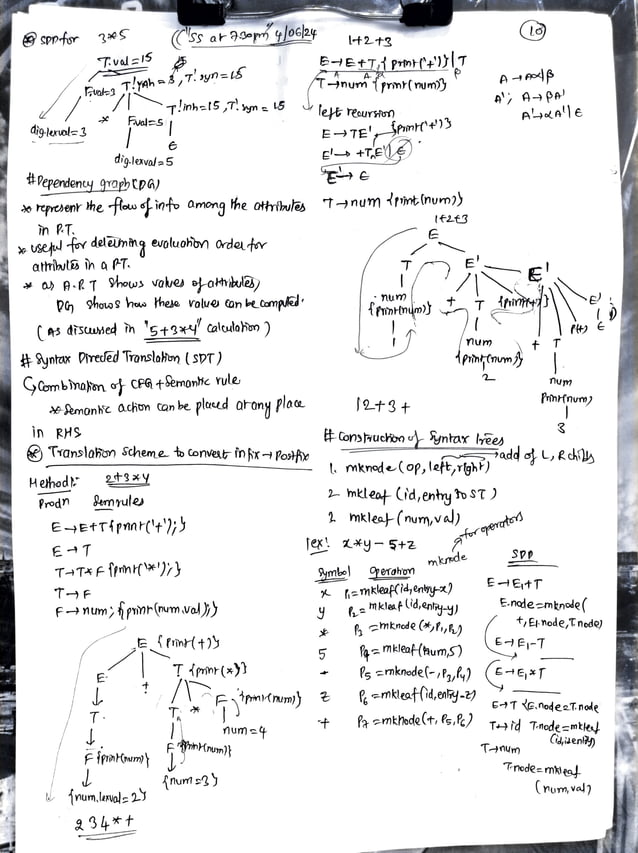 SDD for 3*5 ("SS at 7:30pm") 4/06/24
T.val=15
F.val=3 T!inh=3, T!syn=15
* F.val=5 T!inh=15, T!syn=15
dig.lexval=3
dig.lexval=5
ε
# Dependency graph (DG)
* represent the flow of info among the attributes
in P.T.
* useful for determing evaluation order for
attributes in a P.T.
* as A.P.T shows values of attributes,
DG shows how these values can be computed.
(As discussed in "5+3*4" calculation)
# Syntax Directed Translation (SDT)
Combination of CFG + Semantic rule
* Semantic action can be placed at any place
in RHS
* Translation scheme to convert infix → Postfix
Method: 2+3*4
Prodn Semrules
E→E+T {print('+');}
E→T
T→T*F {print('*');}
T→F
F→num; {print(num.val);}
E {print(+)}
E + T {print(*)}
T T * F {print(num)}
num=4
F {print(num)} F {print(num)}
{num.lexval=2} {num=3}
234*+
10
1+2+3
E→E+T {print('+')} | T
A A α β
T→num {print(num)}
A→Aα|β
A'; A→βA'
A'→αA'|ε
left recursion
E→TE' {print('+')}
E'→+T E' | ε
E'→ε
T→num {print(num)}
1+2+3
E
T E' E'
num + T {print(+)} E'
{print(num)} P(+) ε
1 num + T
{print(num)}
2 num
print(num)
3
12+3+
# Construction of Syntax trees
1. mknode (op, left, right) → add of L, R childs
2 mkleaf (id, entry to ST)
3 mkleaf (num, val)
ex: x*y-5+z mknode for operators
Symbol operation SDD
x P1=mkleaf(id,entry-x)
y P2=mkleaf(id,entry-y)
* P3=mknode(*,P1,P2)
5 P4=mkleaf(num,5)
- P5=mknode(-,P3,P4)
z P6=mkleaf(id,entry-z)
+ P7=mknode(+,P5,P6)
E→E1+T
E.node=mknode(
+,E1.node,T.node)
E→E1-T
E→E1*T
E→T {E.node=T.node
T→id T.node=mkleaf
(id,id.entry)
T→num
T.node=mkleaf
(num,val)